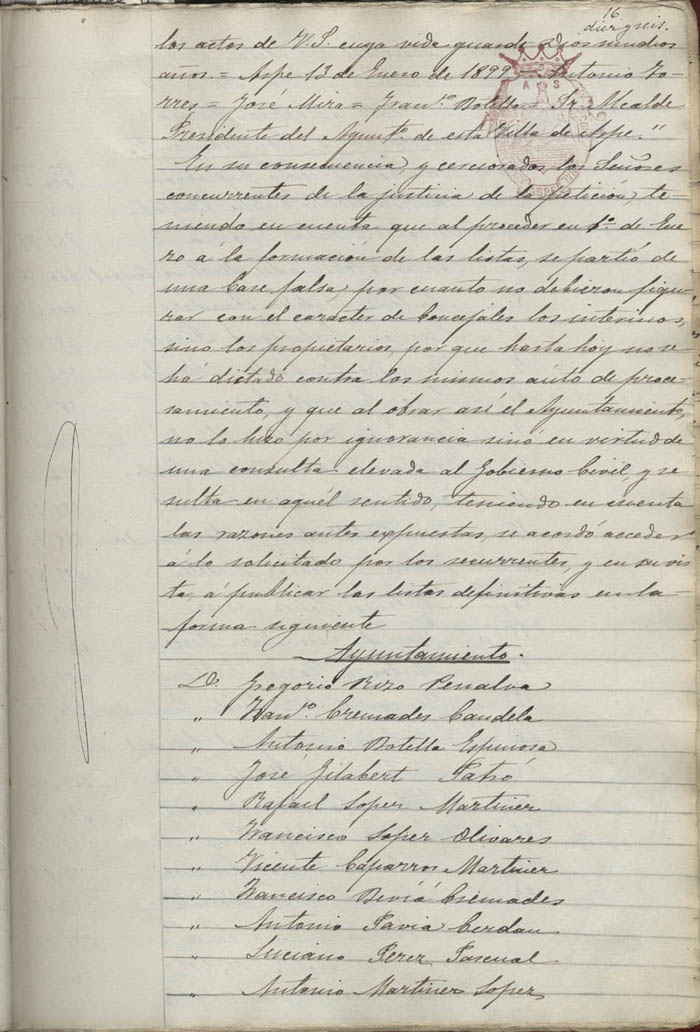 16
diez y seis.
los actos de V.S. cuya vida guarde Dios muchos
años.= Aspe 13 de Enero de 1899 = Antonio To-
rres = José Mira = Franco. Botella = Sr. Alcalde
Presidente del Ayuntº. de esta Villa de Aspe."
A S
En su consecuencia, y cerciorados los Señores
concurrentes de la justicia de la petición, te-
niendo en cuenta que al proceder en 1º. de Ene
ro á la formación de las listas, se partió de
una base falsa, por cuanto no debieron figu-
rar con el carácter de Concejales los interinos,
sino los propietarios, por que hasta hoy no se
há dictado contra los mismos aúto de proce-
samiento, y que al obrar así el Ayuntamiento,
no lo hizo por ignorancia sinó en virtud de
una consulta elevada al Gobierno Civil, y re
suelta en aquél sentido, teniendo en cuenta
las razones antes expuestas, se acordó acceder
á lo solicitado por los recurrentes, y en su vis
ta, á publicar las listas definitivas en la
forma siguiente
Ayuntamiento.
D. Gregorio Rizo Penalva
" Franº. Cremades Candela
" Antonio Botella Espinosa
" José Gilabert
" Rafael Soper Martinez
" Francisco Soper Olivares
" Vicente Caparros Martinez
" Francisco Beviá Cremades
" Antonio Pavia Cerdan
" Luciano Perez Pascual
" Antonio Martinez Soper